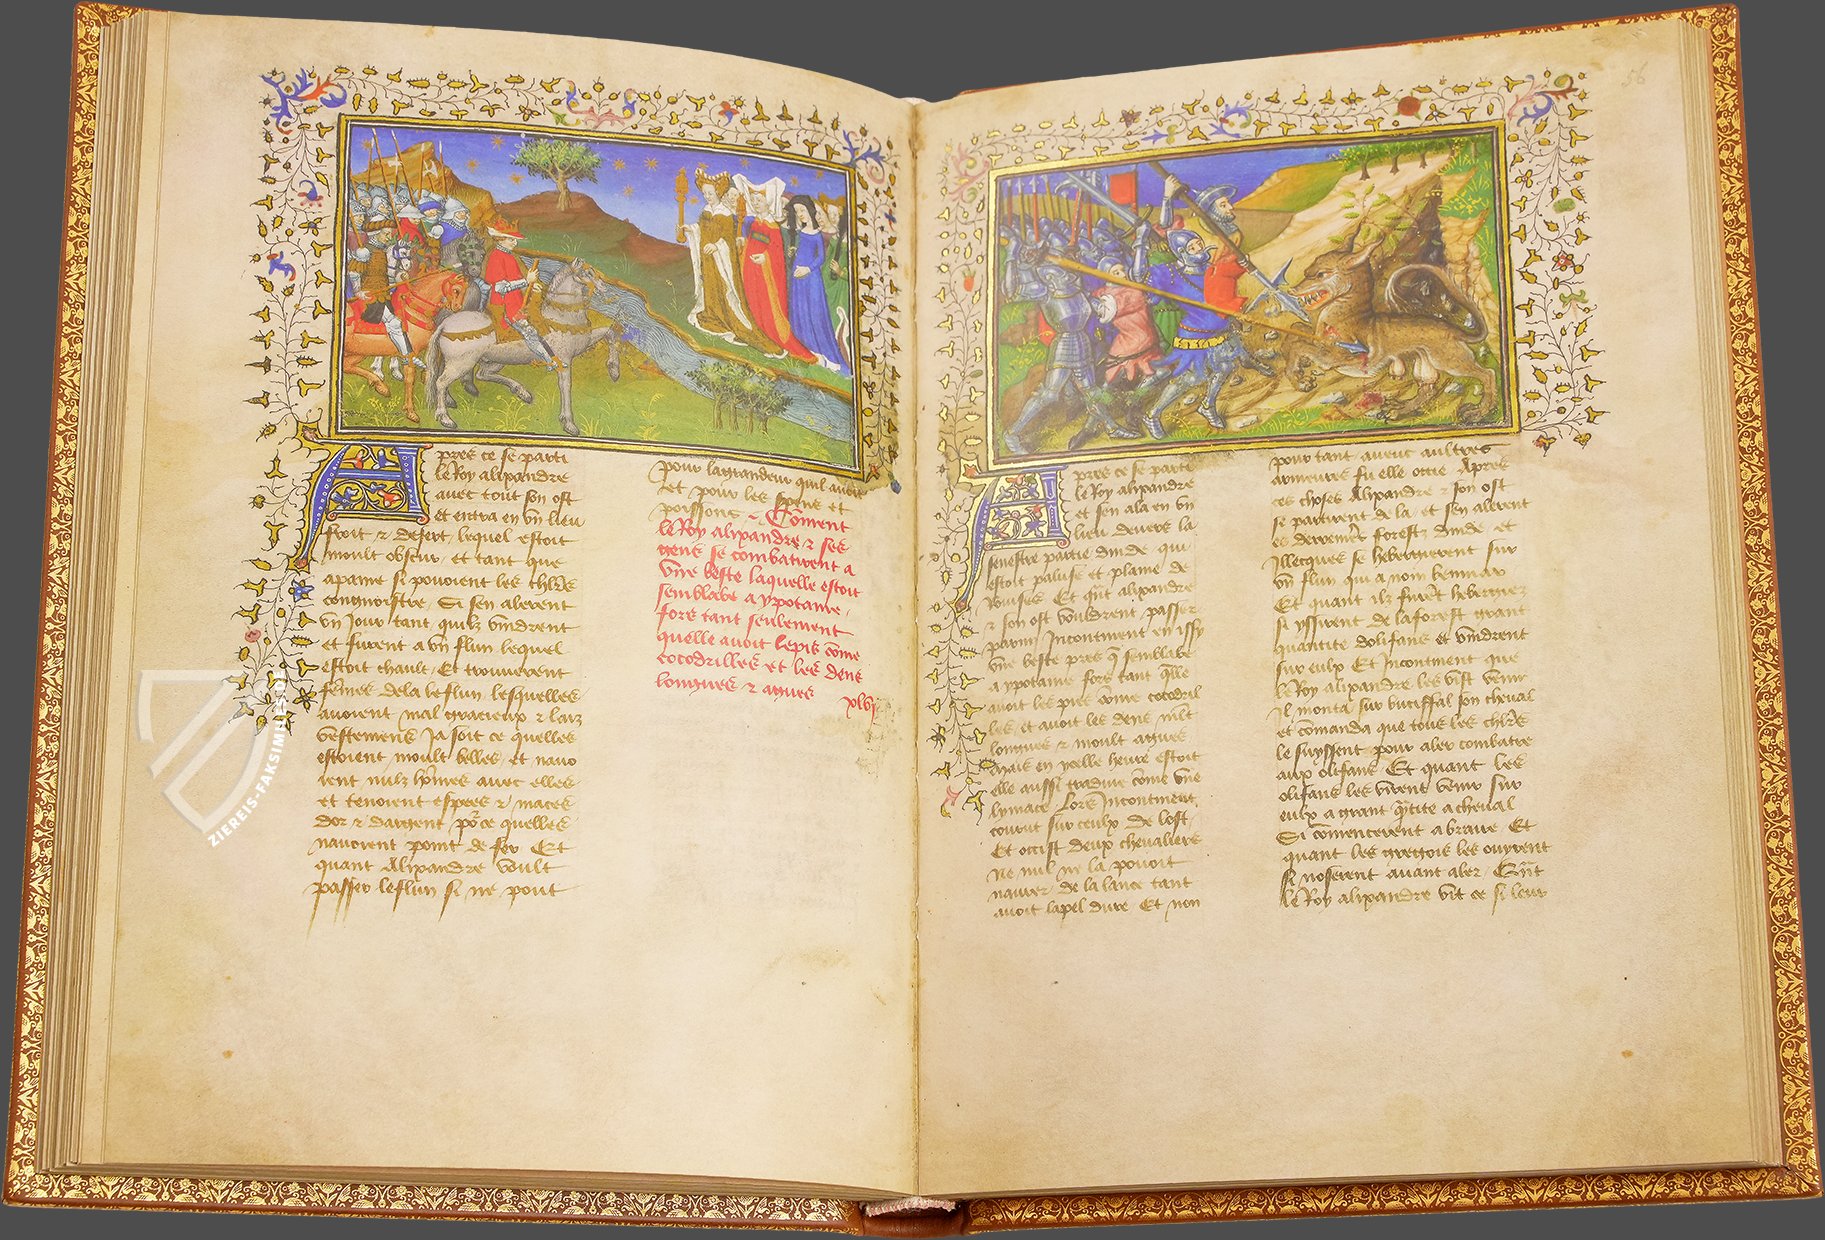 Apres ce se parti
le Roy alixandre
avec tout son ost
et entra en vn lieu
froit & desert lequel estoit
moult obscur et tant que
apaine si povoient les chlrs
congnoistre. Si sen alerent
vn jour tant quilz vindrent
et furent a vn flun lequel
estoit chault. Et trouverent
fem̄es dela le flun lesquelles
avoient mal gracieux & laiz
vestemens Ja soit ce quelles
estoient moult belles et navo
ient nulz hōmes avec elles
et tenoient espees & maces
dor & dargent po ce quelles
navoient point de fer Et
quant Alixandre voult
passer le flun si ne pout
pour la grandeur quil avoit
et pour les et
poissons Cōment
le Roy alixandre & ses
gens se combatirent a
vne beste laquelle estoit
semblable a ypotame,
fors tant seulement
quelle avoit le pis cōme
cocodrilles et les dens
longues & agues
xlvj
56
Apres ce se parti
le Roy alixandre
et sen ala en vn
lieu devers la
senestre partie dinde qui
estoit paluse et plaine de
Et qñt alixandre
& son ost vouldrent passer
parmi Incontinent en issy
vne beste pres q̄ semblable
a ypotame fors tant q̄lle
avoit les pis cōme cocodril
les et avoit les dens mlt
longues & moult agues
Mais en ycelle heure estoit
elle aussi tardive cōme vne
lymace Lors Incontinent
courut sur ceulx de lost
Et occist deux chevaliers
ne nul ne la povoit
navrer de la lance tant
avoit la pel dure Et non
pour tant avecuc aultres
armeures fu elle occie Apres
ces choses Alixandre & son ost
se partirent de la et sen alerent
es derreniers forestz dinde et
Illecques se hebergierent sur
vn flun qui a nom
Et quant ilz furēt hebergiez
si yssirent de la forest grant
quantite dolifans et vindrent
sur eulx Et Incontinent que
le Roy alixandre les vist venir
Il monta sur buciffal son cheval
et cōmanda que tous les chlrs
le suyssent pour aler combatre
aux olifans. Et quant les
olifans les virent venir sur
eulx a grant q̄ntite a cheval
Si cōmencerent a braire Et
quant les gregois les ouyrent
si noserent avant aler Qñt
le Roy alixandre vit ce si leur
ZIEREIS-FAKSIMILES